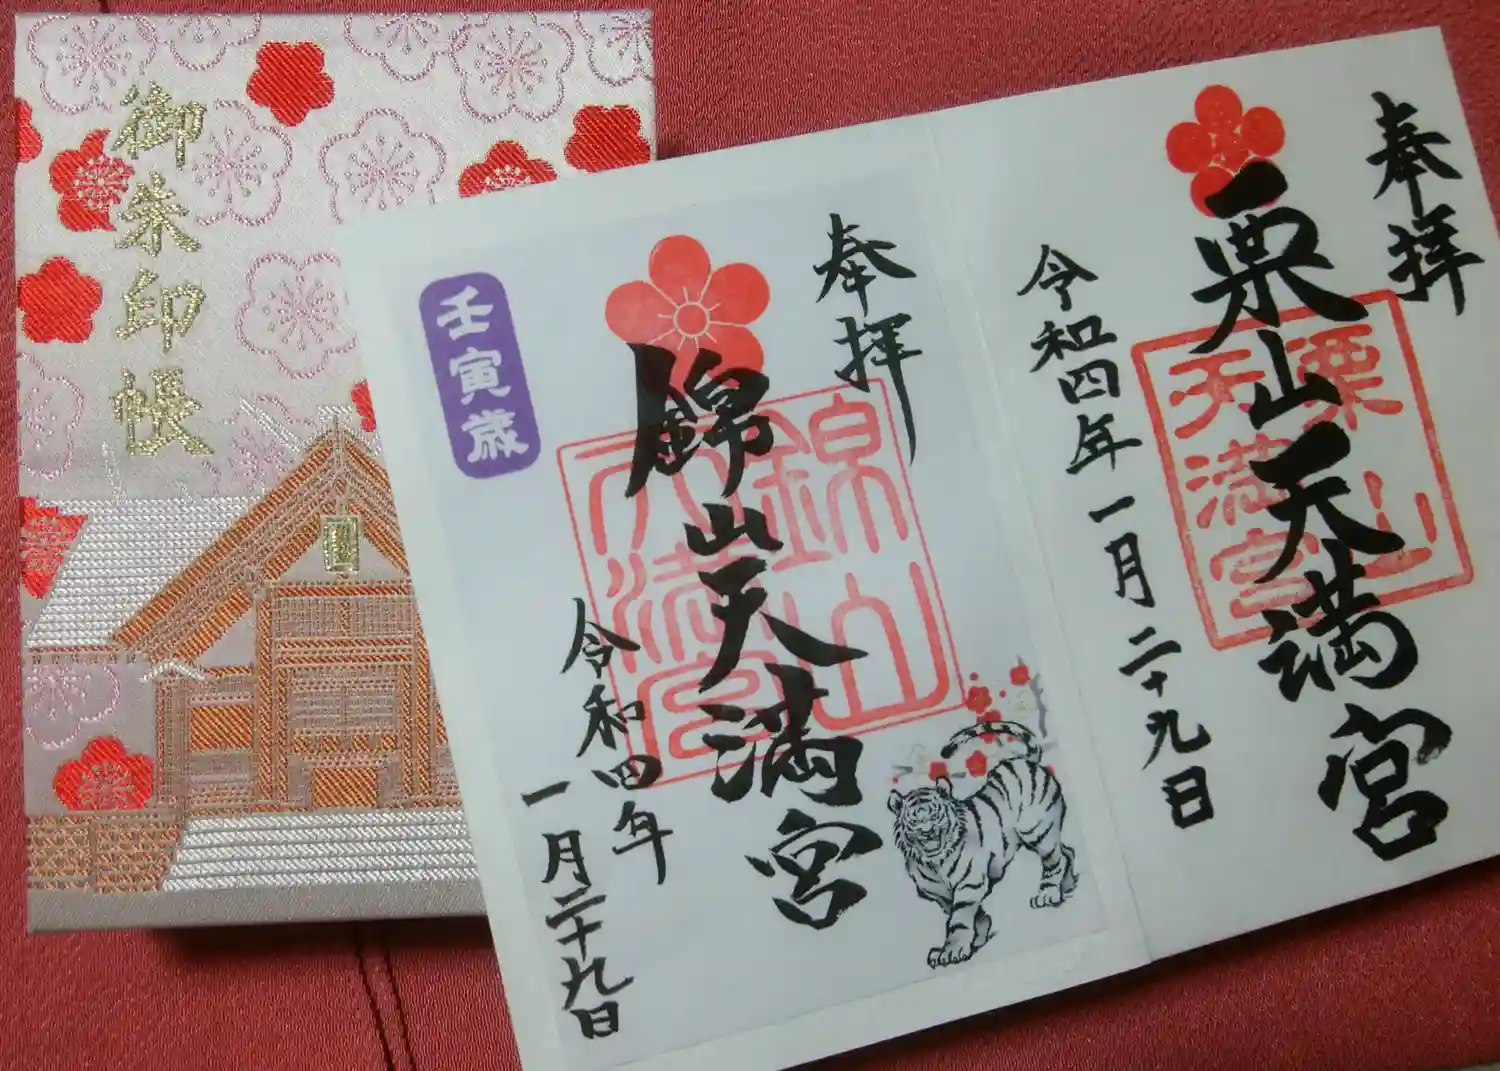 御朱印帳
奉拝
栗山天満宮
栗山
天満宮
令和四年一月二十九日
奉拝
錦山天満宮
錦山
天満宮
壬寅歳
令和四年
一月二十九日